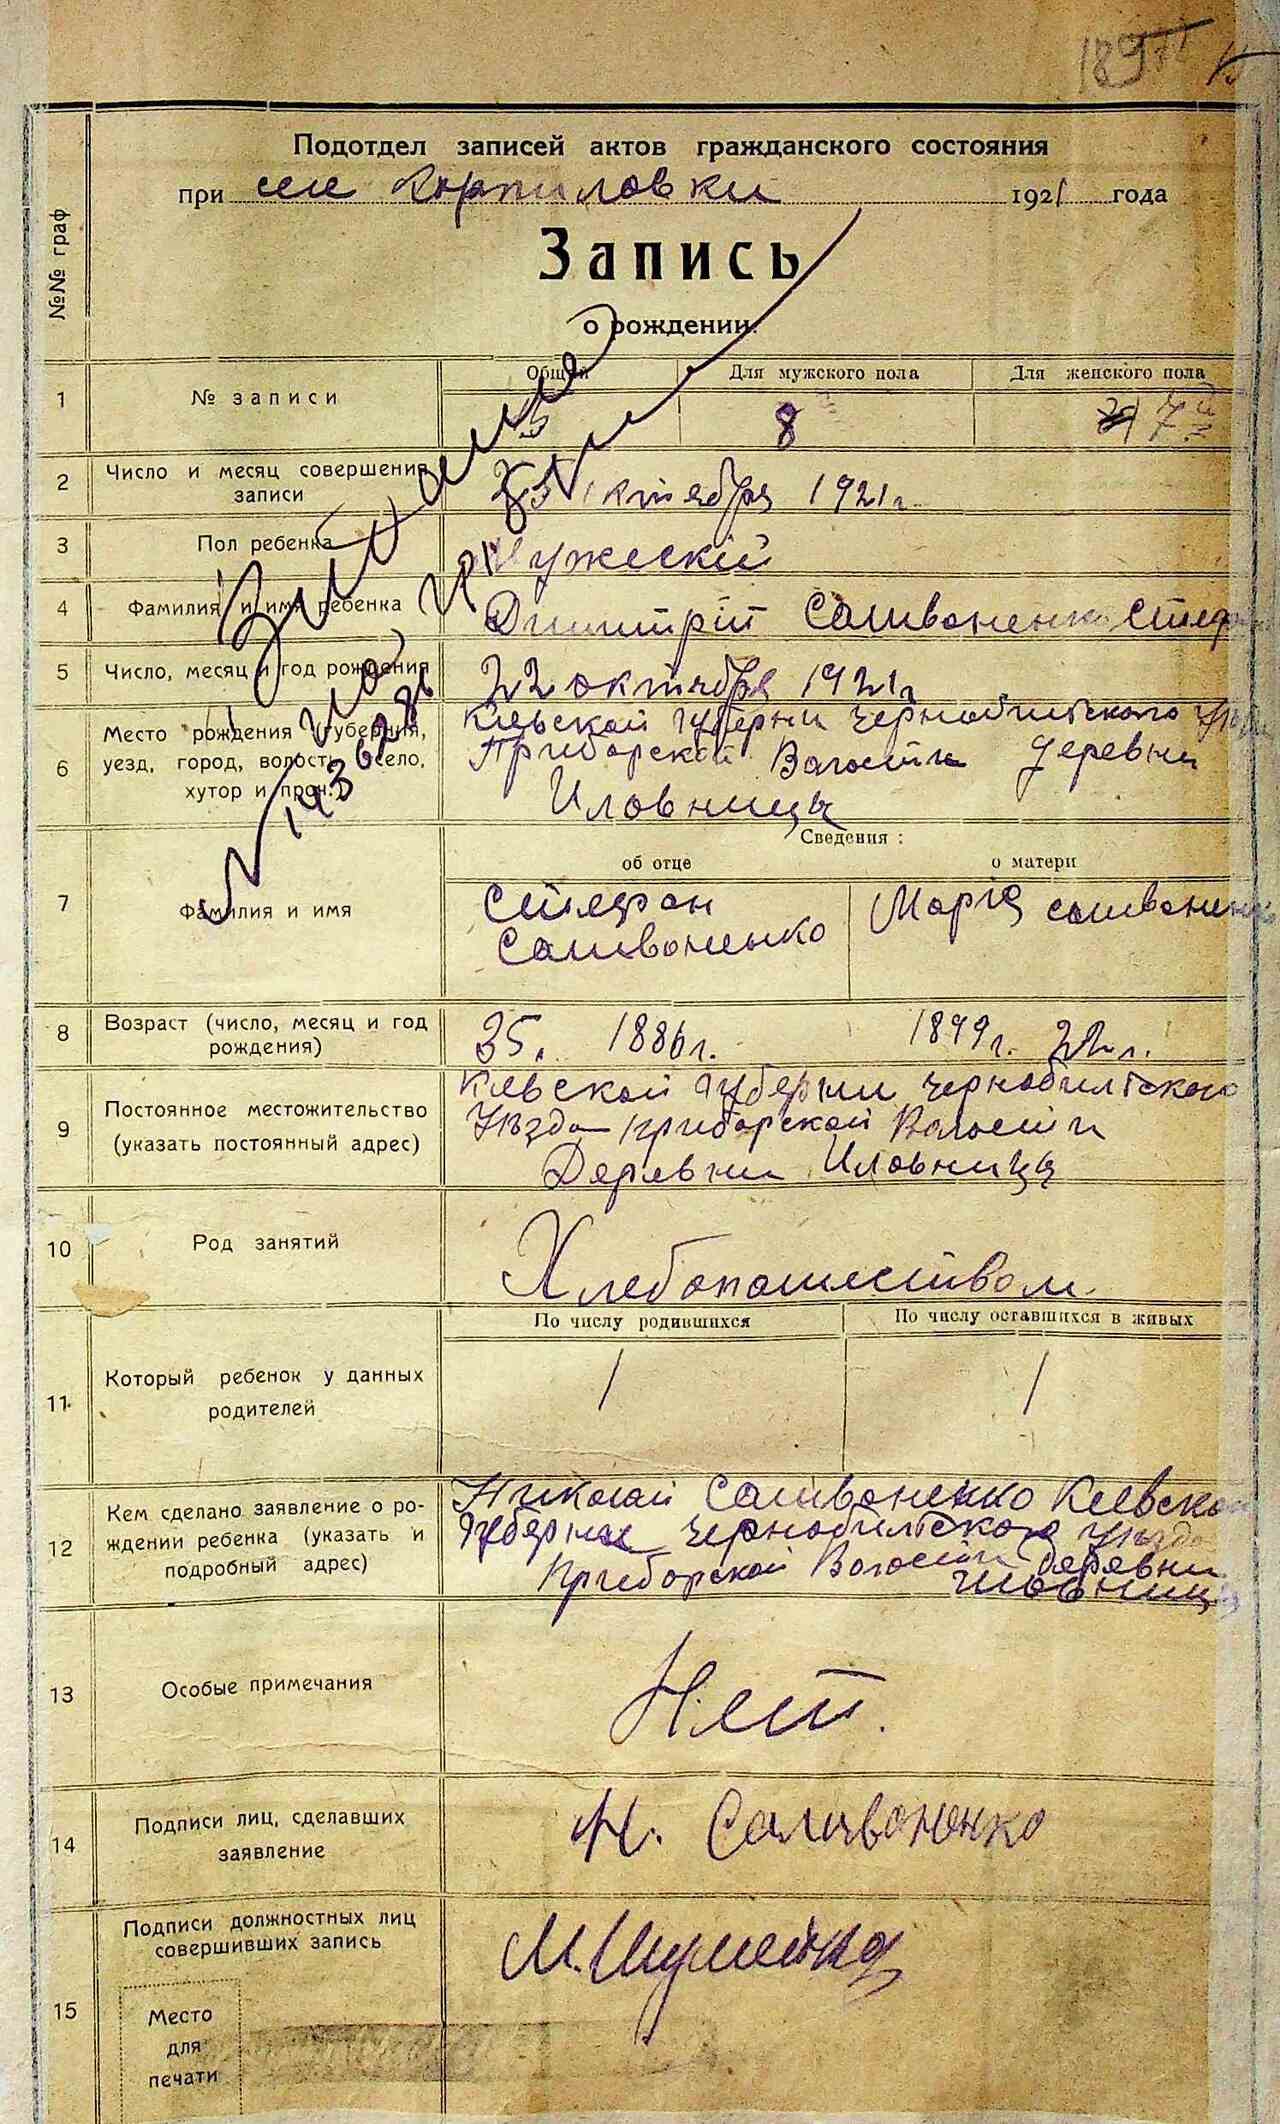 Подотдел записей актов гражданского состояния
при селе Корпиловки 1921 года
Запись
о рождении.
№№ граф
1 № записи
Общий Для мужского пола Для женского пола
8
2 Число и месяц совершения записи
октября 1921 г.
3 Пол ребенка
Мужескій
4 Фамилия и имя ребенка
Димитрій Саливоненко Стеф
5 Число, месяц и год рождения
22 октября 1921 г
6 Место рождения (губерния, уезд, город, волость, село, хутор и проч.)
Киевской губерни Чернобильского
Приборской Волости деревни
Иловница
Сведения:
об отце о матери
7 Фамилия и имя
Стефан
Саливоненько
Марія Саливоненко
8 Возраст (число, месяц и год рождения)
35. 1886 г. 1899 г. 22 л.
9 Постоянное местожительство (указать постоянный адрес)
Киевской губернии Чернобильского
Уезда Приборской Волости
Деревни Иловница
10 Род занятий
Хлебопашеством.
По числу родившихся По числу оставшихся в живых
11 Который ребенок у данных родителей
1 1
12 Кем сделано заявление о рождении ребенка (указать и подробный адрес)
Николай Саливоненко Киевской
Губернии Чернобильского уезда
Приборской Волости деревни
Иловница
13 Особые примечания
Нет.
14 Подписи лиц, сделавших заявление
Н. Саливоненко
15 Подписи должностных лиц совершивших запись
М. Шумейко
Место
для
печати